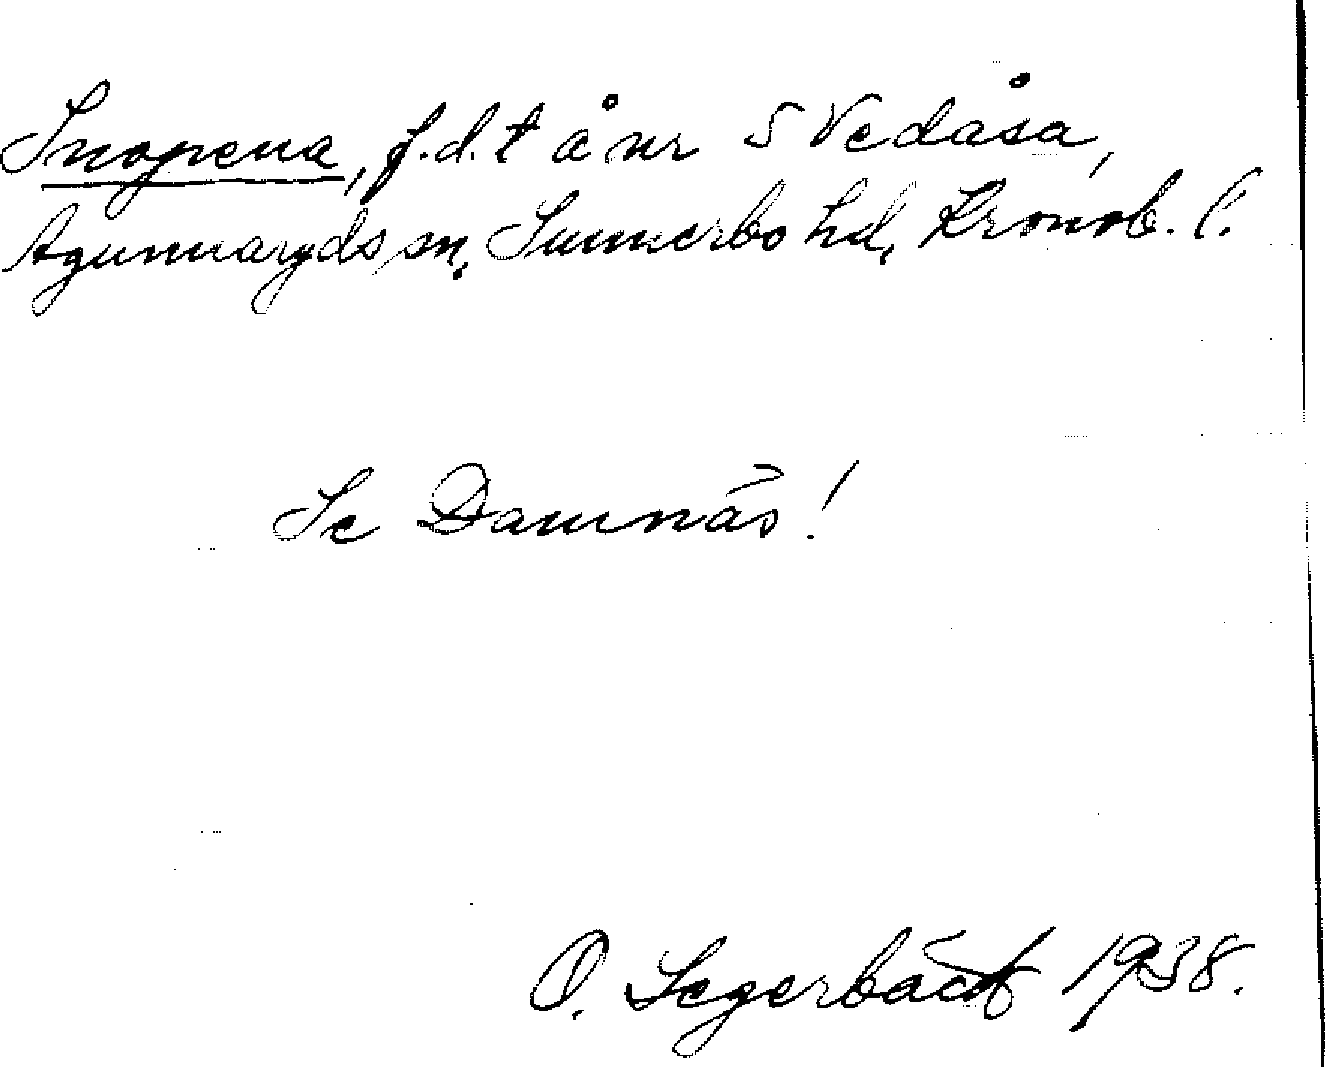 Snopena, f.d.t å nr 5 Vedåsa,
Agunnaryds sn, Sunnerbo hd, Kronob. l.
Se Damnäs!
O. Segerbäck 1938.